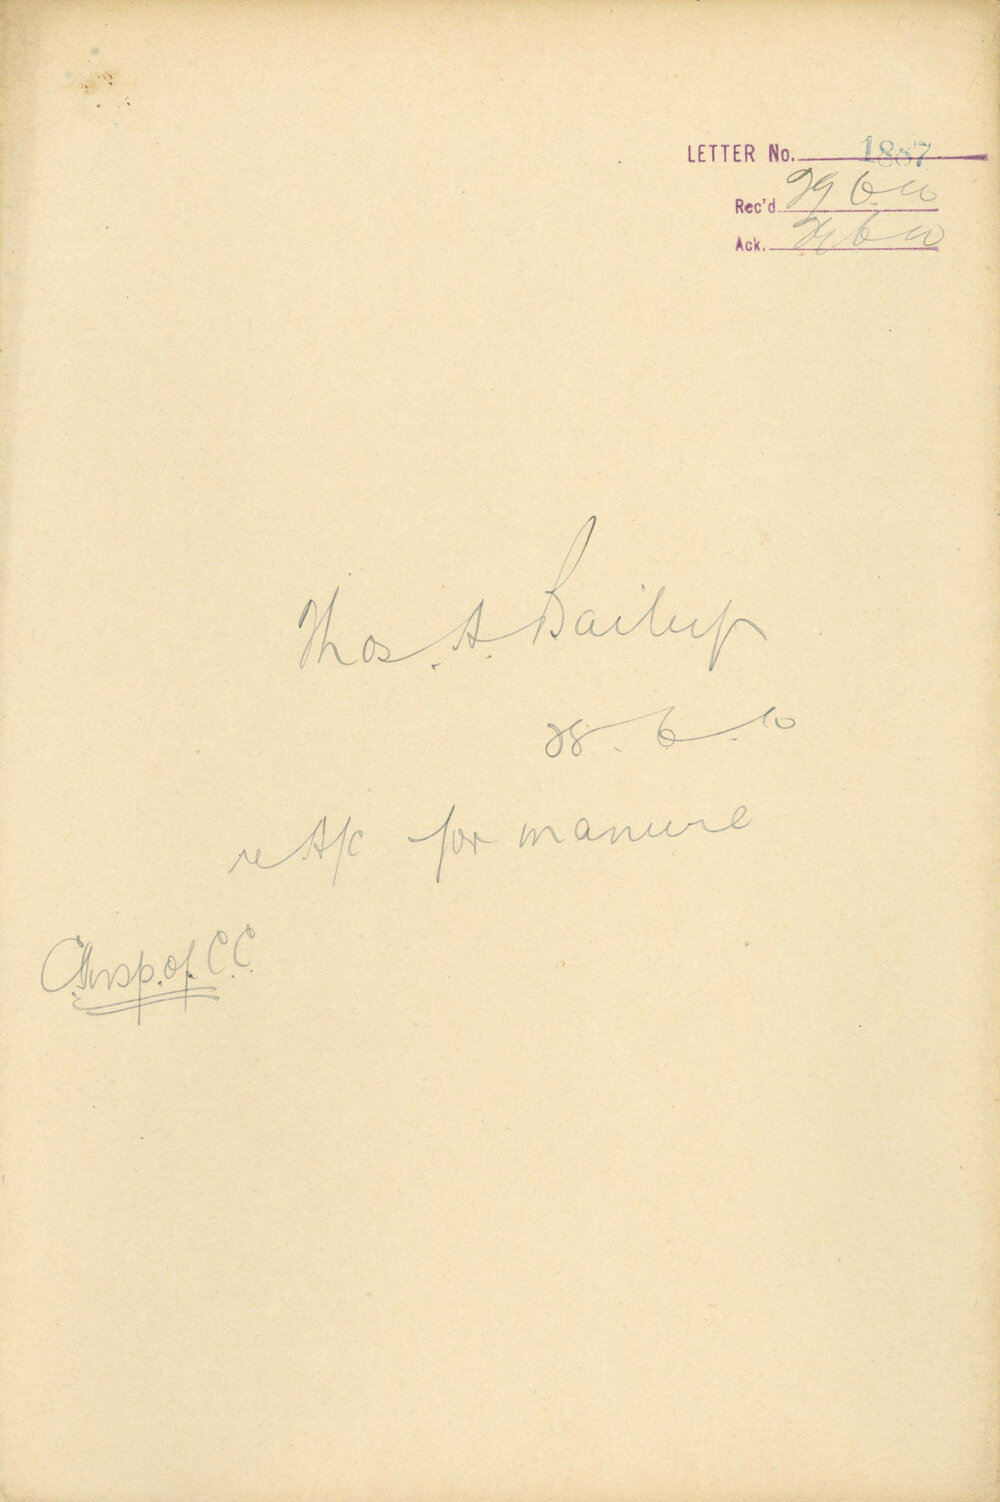 LETTER No. 1887
Rec'd 29 6.10
Ack. 6 10
Thos. A. Bailup
28. 6. 10
re A/c for manure
C. Insp. of C.C.